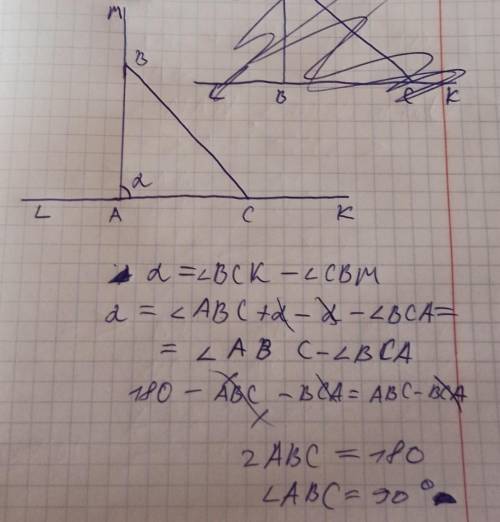 M
B
α
L A C K
B C K
α = ∠BCK - ∠CBM
α = ∠ABC + α - α - ∠BCA =
= ∠ABC - ∠BCA
180 - ABC - BCA = ABC - BCA
2ABC = 180
∠ABC = 90°